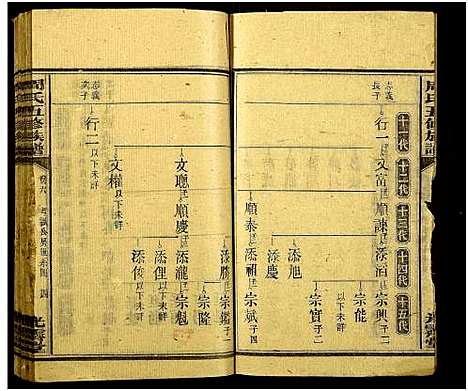 周氏五修族譜
十一代 十二代 十三代 十四代 十五代
志義長子
行一 文富 順諫 添洎 宗興 子二
宗能 以下未詳
添旭
添慶
順泰 添祖 宗斌 子四
志義次子
行二 以下未詳
文聰 順慶 添勝 宗鑑 子二
宗實 子一
宗隆
添瀧 宗魁
添俚 以下未詳
添俊 以下未詳
文權 以下未詳
周氏五修族譜
卷六
四
光霽堂